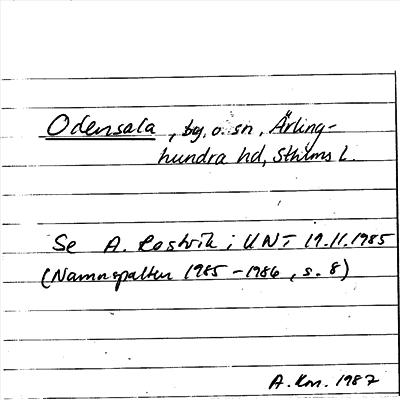 Odensala, by, o. sn, Ärling-
hundra hd, Sthlms l.
Se A. Rostvik i UNT 19.11.1985
(Namnspalten 1985-1986, s. 8)
A. Kn. 1987